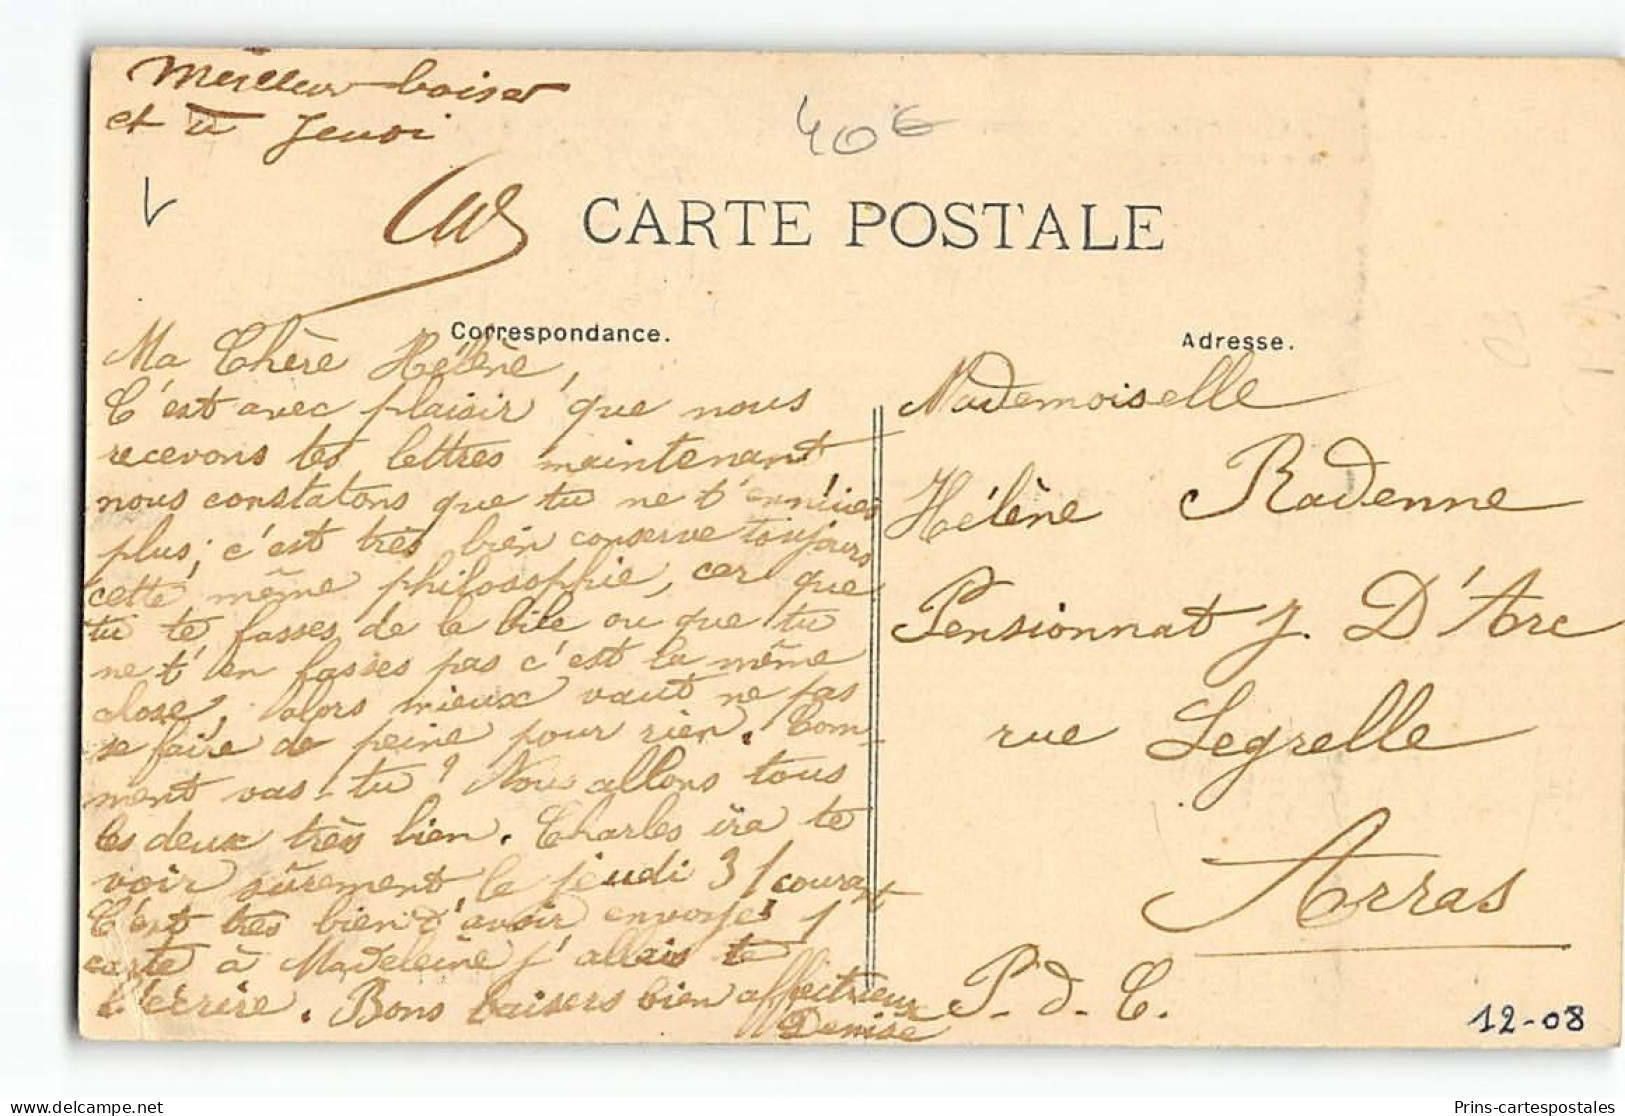 Meilleur baiser
et à Jeudi
40€
CARTE POSTALE
Correspondance.
Adresse.
Ma Chère Hélène,
C'est avec plaisir que nous
recevons tes lettres maintenant
nous constatons que tu ne t'ennuies
plus; c'est très bien conserve toujours
cette même philosophie, car que
tu te fasses de la bile ou que tu
ne t'en fasses pas c'est la même
chose, alors mieux vaut ne pas
se faire de peine pour rien. Com-
ment vas-tu? Nous allons tous
les deux très bien. Charles ira te
voir sûrement le jeudi 31 courant
C'est très bien d'avoir envoyé 1
carte à Madeleine j'allais te
l'écrire. Bons baisers bien affectueux
Denise
Mademoiselle
Hélène Radenne
Pensionnat J. D'Arc
rue Legrelle
Arras
P.d.C.
12-08
Prins-cartespostales